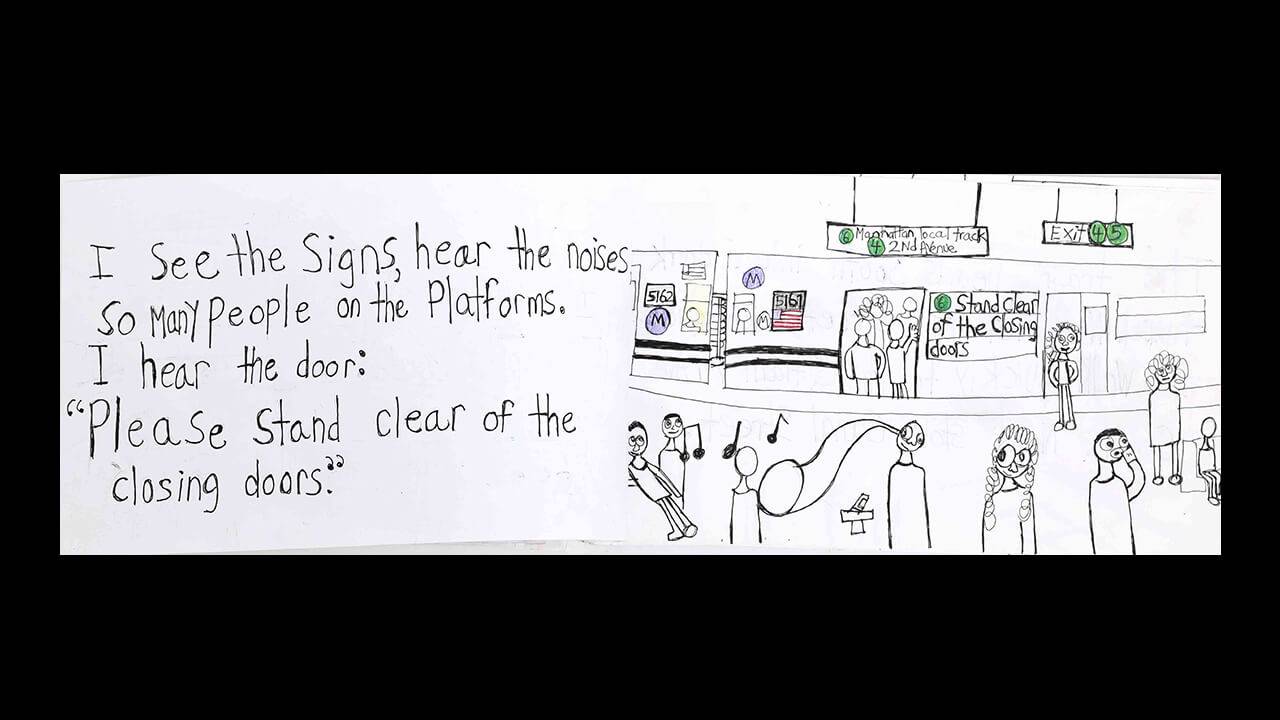 I See the Signs, hear the noises,
So Many People on the Platforms.
I hear the door:
“Please Stand clear of the
closing doors.”
6 Manhattan, local track
4 2Nd Avenue
Exit 4 5
5162
M
M
M
5161
6 Stand Clear
of the Closing
doors